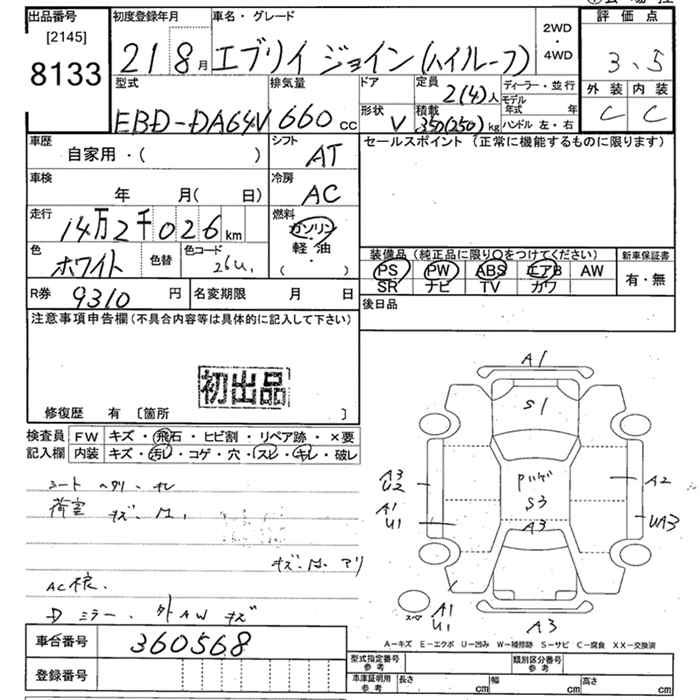 出品番号
[2145]
8133
初度登録年月
21 8月
車名・グレード
エブリイ ジョイン(ハイルーフ)
2WD
・
4WD
評価点
3.5
外装 内装
C C
型式
EBD-DA64V
排気量
660 cc
ドア
形状
V
定員
2(4)人
積載
350(250)kg
ディーラー・並行
モデル年式 年
ハンドル 左・右
車歴
自家用・( )
シフト
AT
車検
年 月( 日)
冷房
AC
走行
14万2千026km
燃料
ガソリン
軽・油
( )
色
ホワイト
色替
色コード
26U
R券
9310 円
名変期限 月 日
セールスポイント(正常に機能するものに限ります)
装備品(純正品に限り○をつけてください)
PS PW ABS エアB AW
SR ナビ TV カワ
新車保証書
有・無
後日品
注意事項申告欄(不具合内容等は具体的に記入して下さい)
初出品
修復歴 有 〔箇所 〕
検査員
記入欄
FW キズ・飛石・ヒビ割・リペア跡・×要
内装 キズ・汚レ・コゲ・穴・スレ・キレ・破レ
シート ヘタリ・
荷室 キズ・
Dミラー・外AW キズ
A1
S1
S3
A3
A3
U2
A1
U1
A2
UA3
A1
U1
A3
A−キズ E−エクボ U−凹み W−補修跡 S−サビ C−腐食 XX−交換済
車台番号
360568
登録番号
型式指定番号
参考
類別区分番号
参考
車庫証明用
参考
長さ cm
幅 cm
高さ cm